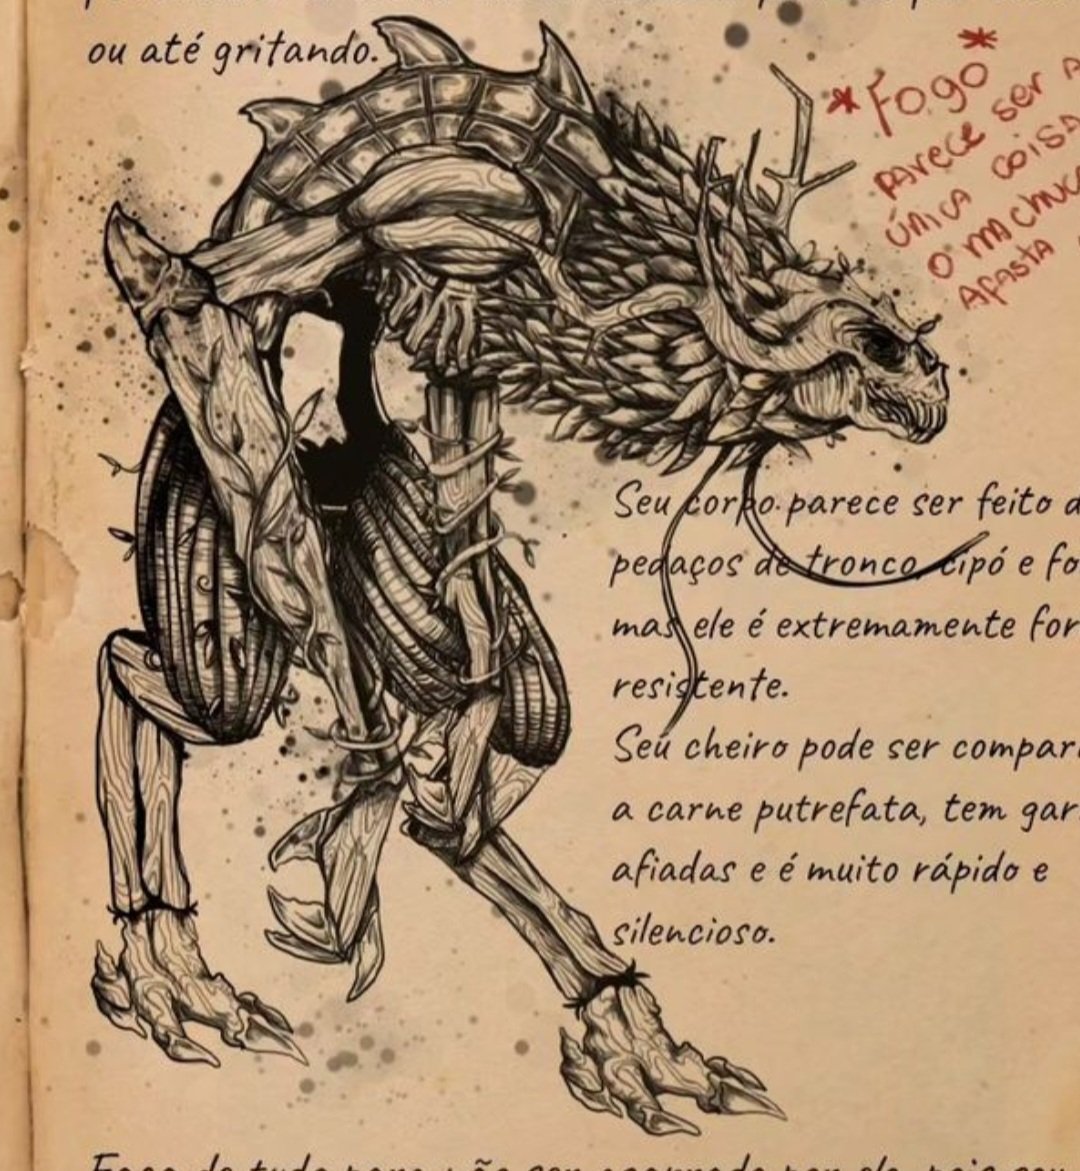 ou até gritando.
* Fogo *
PARECE SER A
ÚNICA COISA
O MACHUCA
AFASTA
Seu corpo parece ser feito d
pedaços de tronco, cipó e fo
mas ele é extremamente for
resistente.
Seu cheiro pode ser compar
a carne putrefata, tem gar
afiadas e é muito rápido e
silencioso.
de tudo para não ser por ele, pois